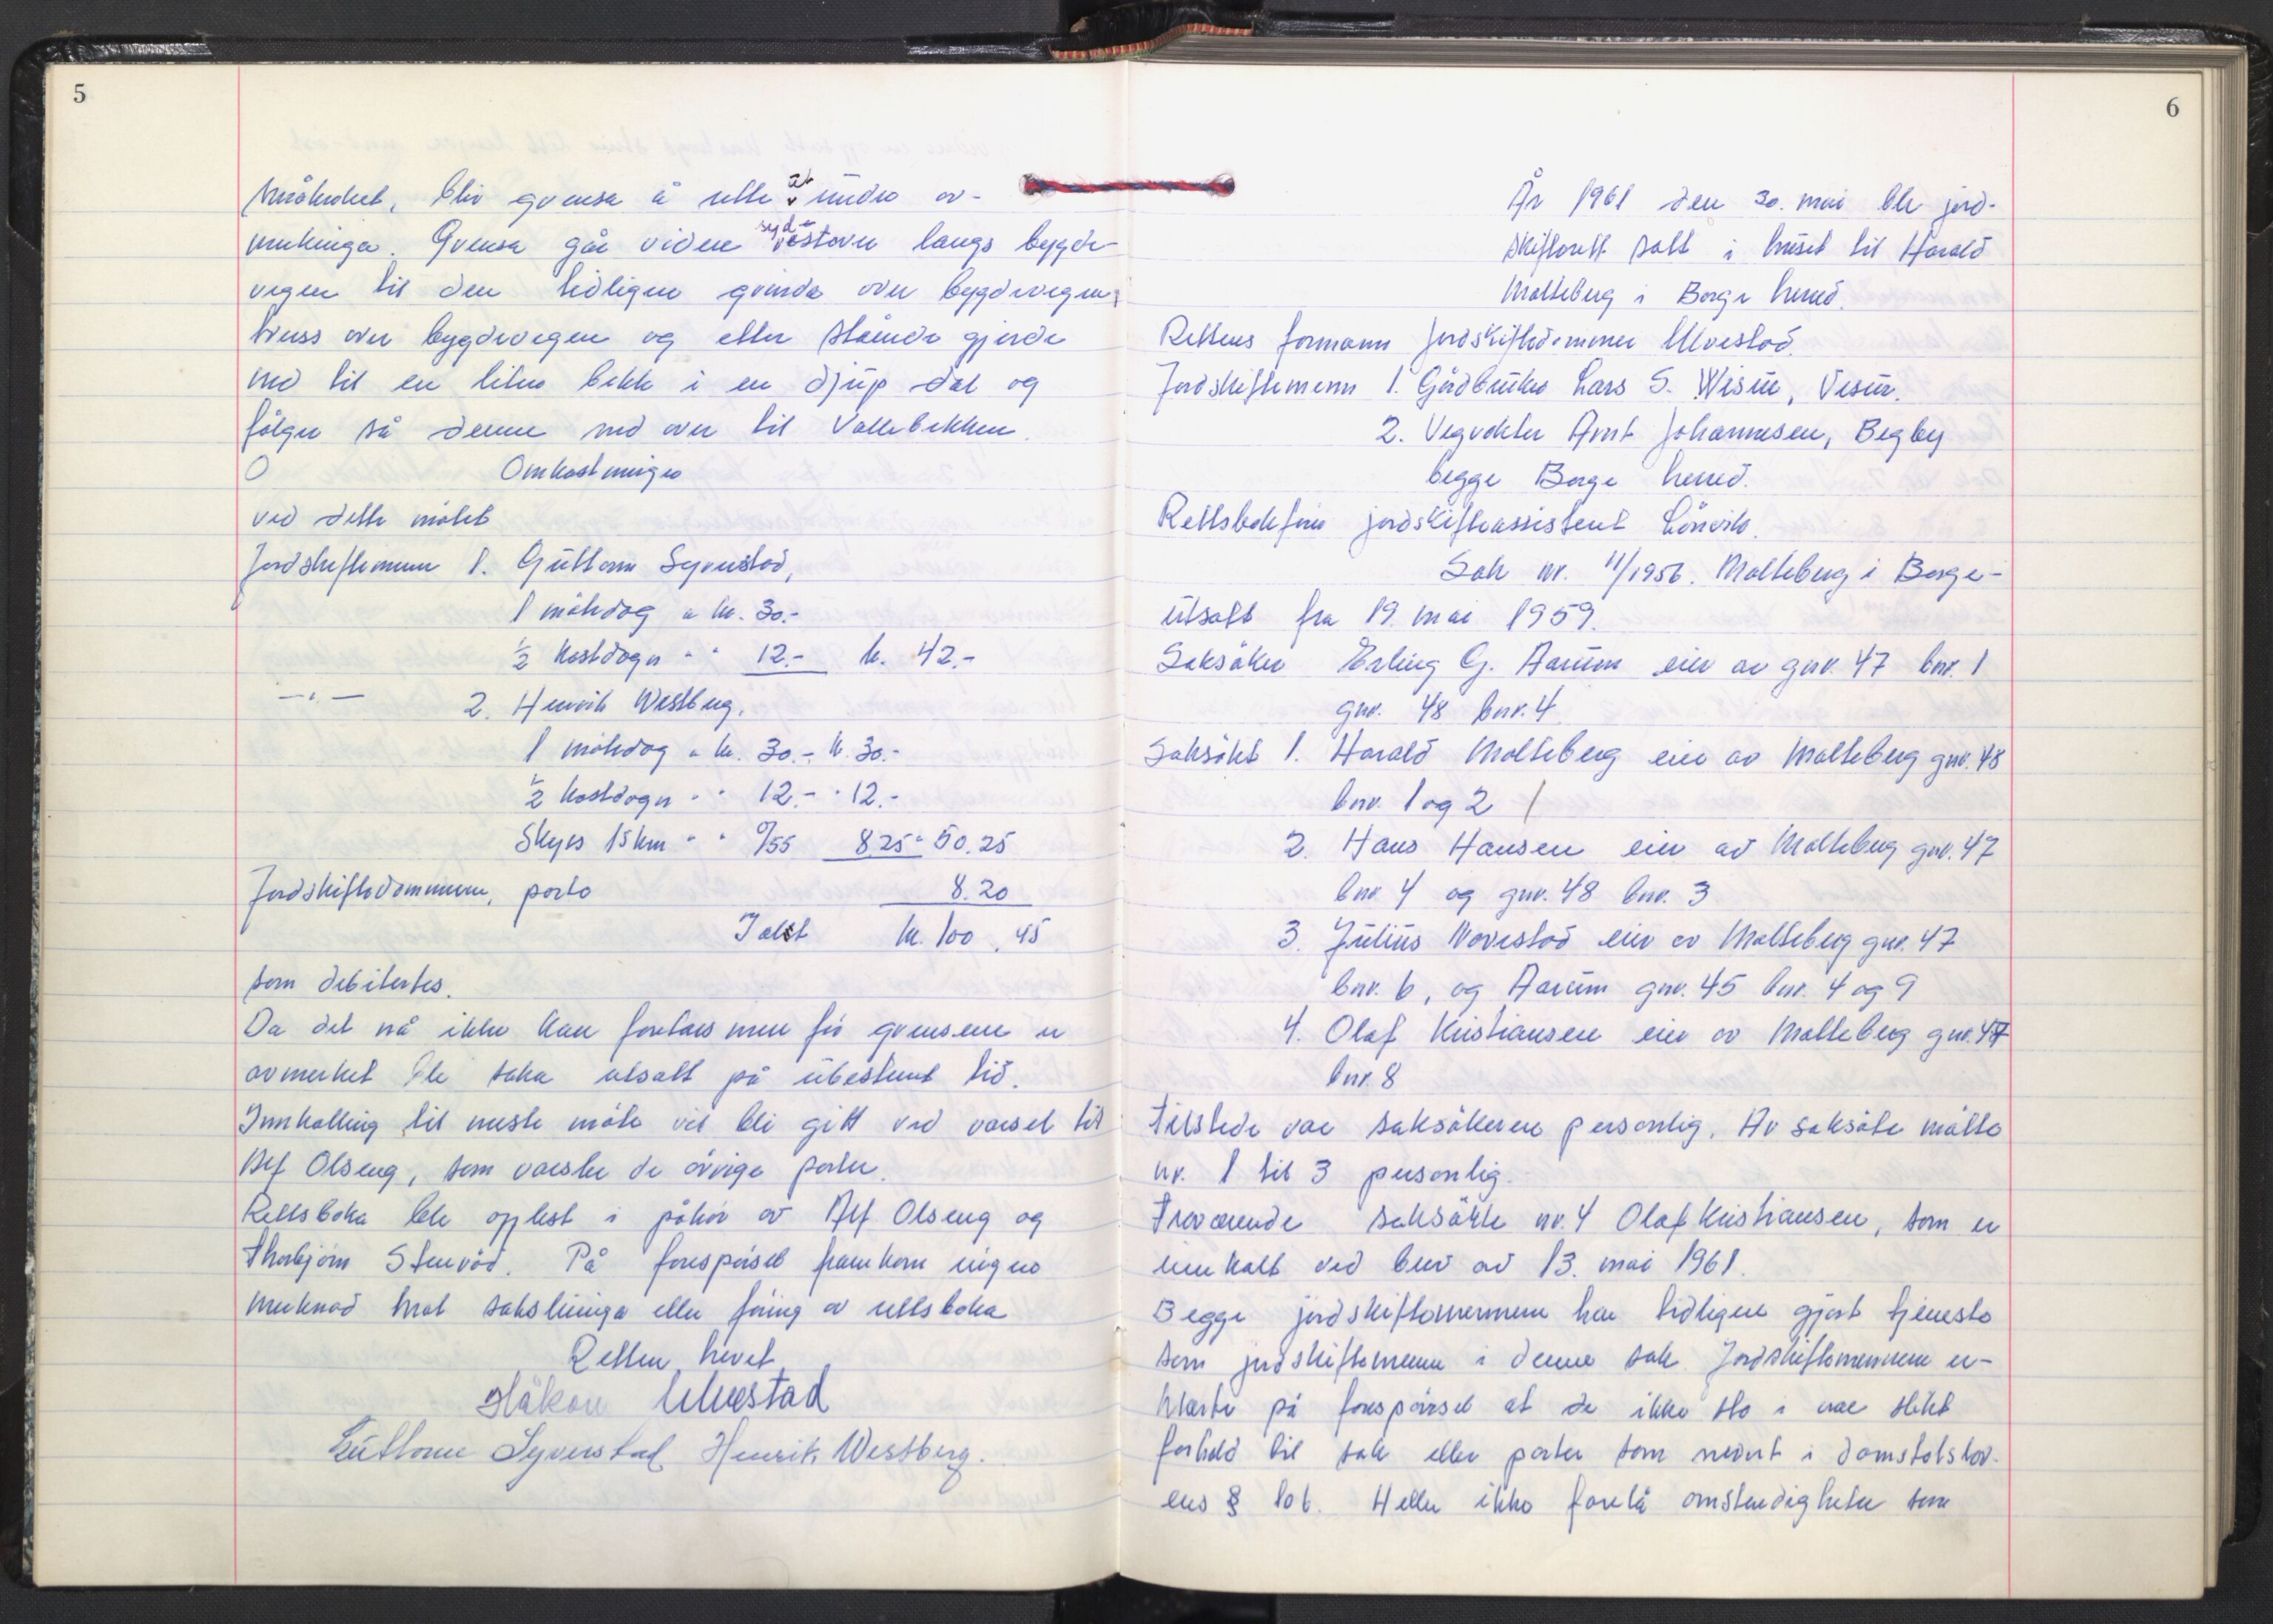 5
småkratt, blir grensa å rette ut under av-
merkinga. Grensa går videre syd-vestover langs bygde-
vegen til den tidligere grinda over bygdevegen,
tverss over bygdevegen og etter stående gjerde
ned til en liten bekk i en djup dal og
følger så denne ned over til Vallebekken.
Omkostninger
ved dette møtet
Jordskiftemenn 1. Guttorm Syverstad,
1 møtedag a kr. 30.-
½ kostdøgn " " 12.- kr. 42.-
—"— 2. Henrik Westberg.
1 møtedag a kr. 30.- kr. 30.-
½ kostdøgn " " 12.- " 12.-
Skyss 15 km " " 0/55 8.25 " 50.25
Jordskiftedommeren, porto 8.20
Ialt kr. 100.45
som debitertes.
Da det nå ikke kan foretaes mer før grensene er
avmerket ble saka utsatt på ubestemt tid.
Innkalling til neste møte vil bli gitt ved varsel til
Alf Olseng, som varsler de øvrige parter.
Rettsboka ble opplest i påhør av Alf Olseng og
Thorbjørn Stenrød. På forespørsel framkom ingen
merknad mot saksførsel eller føring av rettsboka
Retten hevet
Håkon Ulvestad
Guttorm Syverstad Henrik Westberg.
6
År 1961 den 30. mai ble jord-
skifterett satt i huset til Harald
Molteberg i Borge herred.
Rettens formann Jordskiftedommer Ulvestad.
Jordskiftemenn 1. Gårdbruker Lars S. Wisur, Visur.
2. Vegvokter Arnt Johannesen, Begby
begge Borge herred.
Rettsbokfører jordskifteassistent Lønvik.
Sak nr. 11/1956. Molteberg i Borge-
utsatt fra 19. mai 1959.
Saksøker Erling G. Aarum eier av gnr. 47 bnr. 1
gnr. 48 bnr. 4
Saksøkt 1. Harald Molteberg eier av Molteberg gnr. 48
bnr. 1 og 2 /
2. Hans Hansen eier av Molteberg gnr. 47
bnr 4 og gnr. 48 bnr. 3
3. Julius Navestad eier av Molteberg gnr. 47
bnr. 6, og Aarum gnr. 45 bnr. 4 og 9
4. Olaf Kristiansen eier av Molteberg gnr. 47
bnr. 8
Tilstede var saksøkeren personlig. Av saksøkte møtte
nr. 1 til 3 personlig.
Fraværende saksøkte nr. 4 Olaf Kristiansen, som er
innkalt ved brev av 13. mai 1961.
Begge jordskiftemennene har tidligere gjort tjeneste
som jordskiftemenn i denne sak. Jordskiftemennene er-
klærte på forespørsel at de ikke sto i noe slikt
forhold til sak eller parter som nevnt i domstolslov-
ens § 106. Heller ikke forelå omstendigheter som